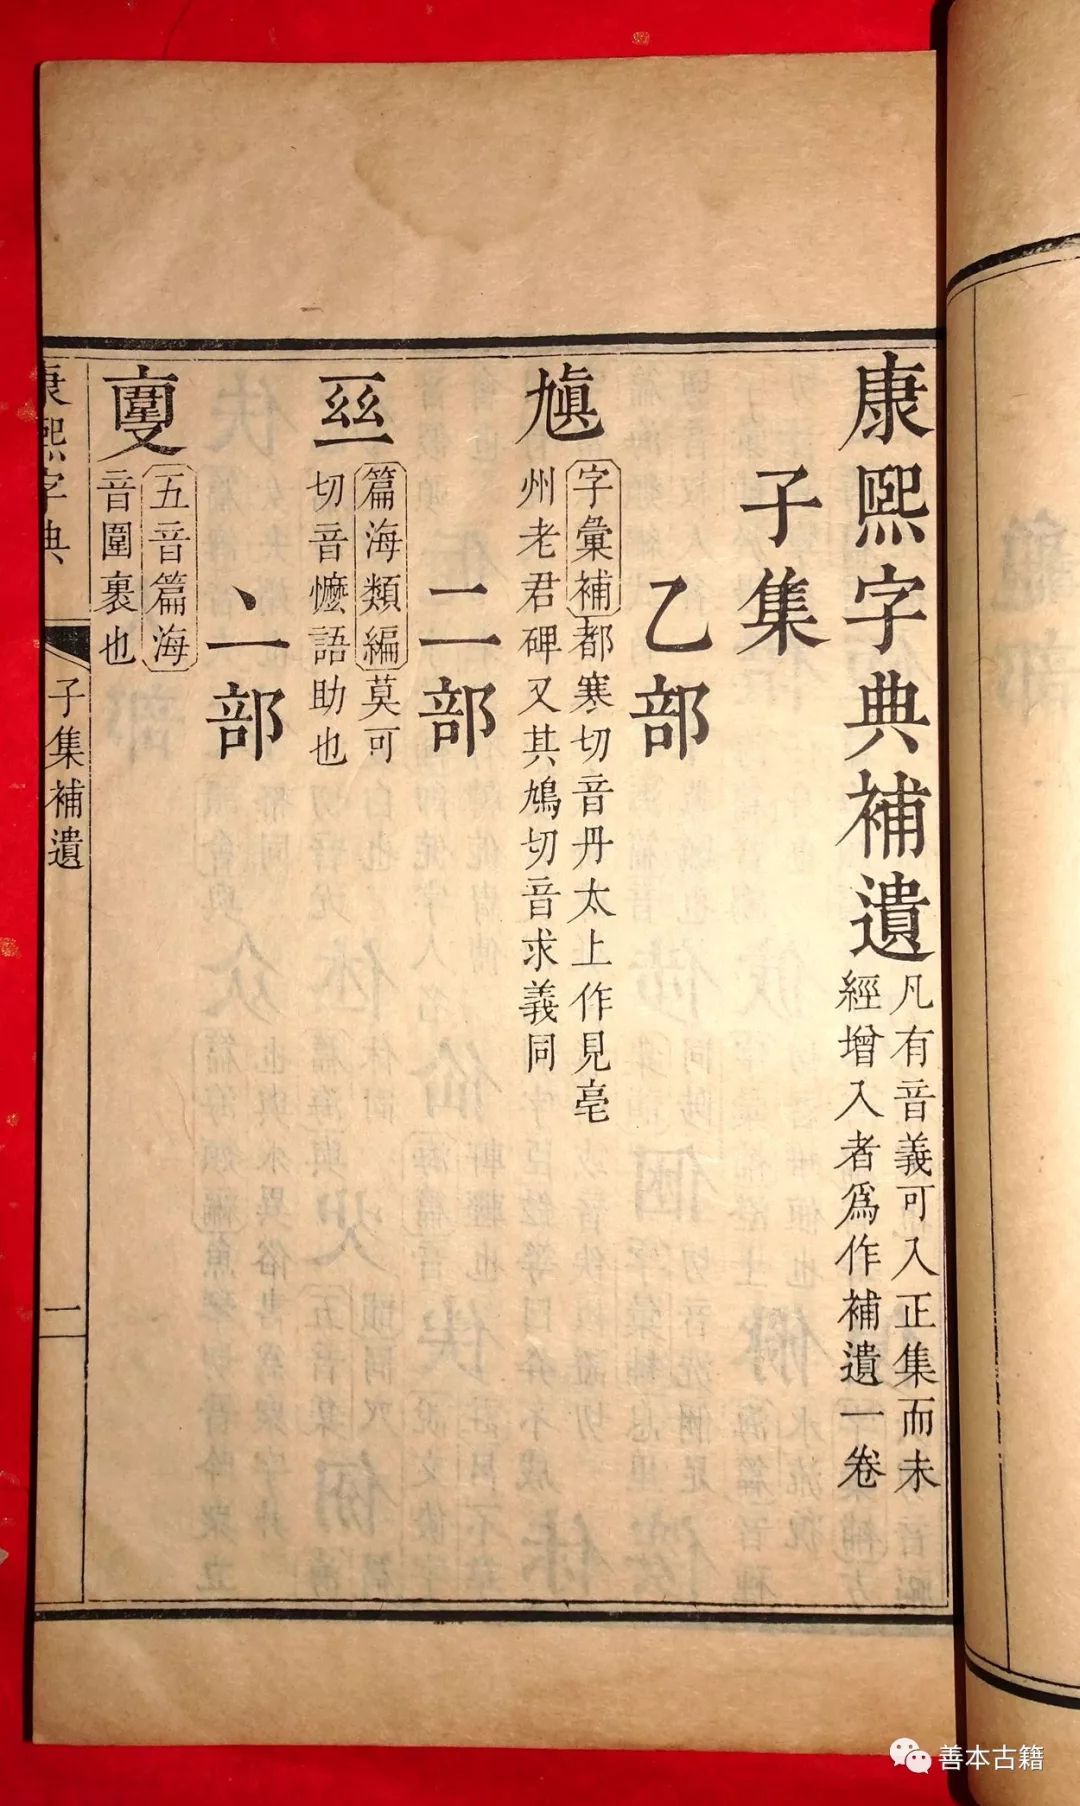 康熙字典補遺
凡有音義可入正集而未
經增入者爲作補遺一卷
子集
乙部
字彙補都寒切音丹太上作見亳
州老君碑又其鳩切音求義同
二部
篇海類編莫可
切音懡語助也
亠部
五音篇海
音圍裹也
康熙字典 子集補遺 一
善本古籍